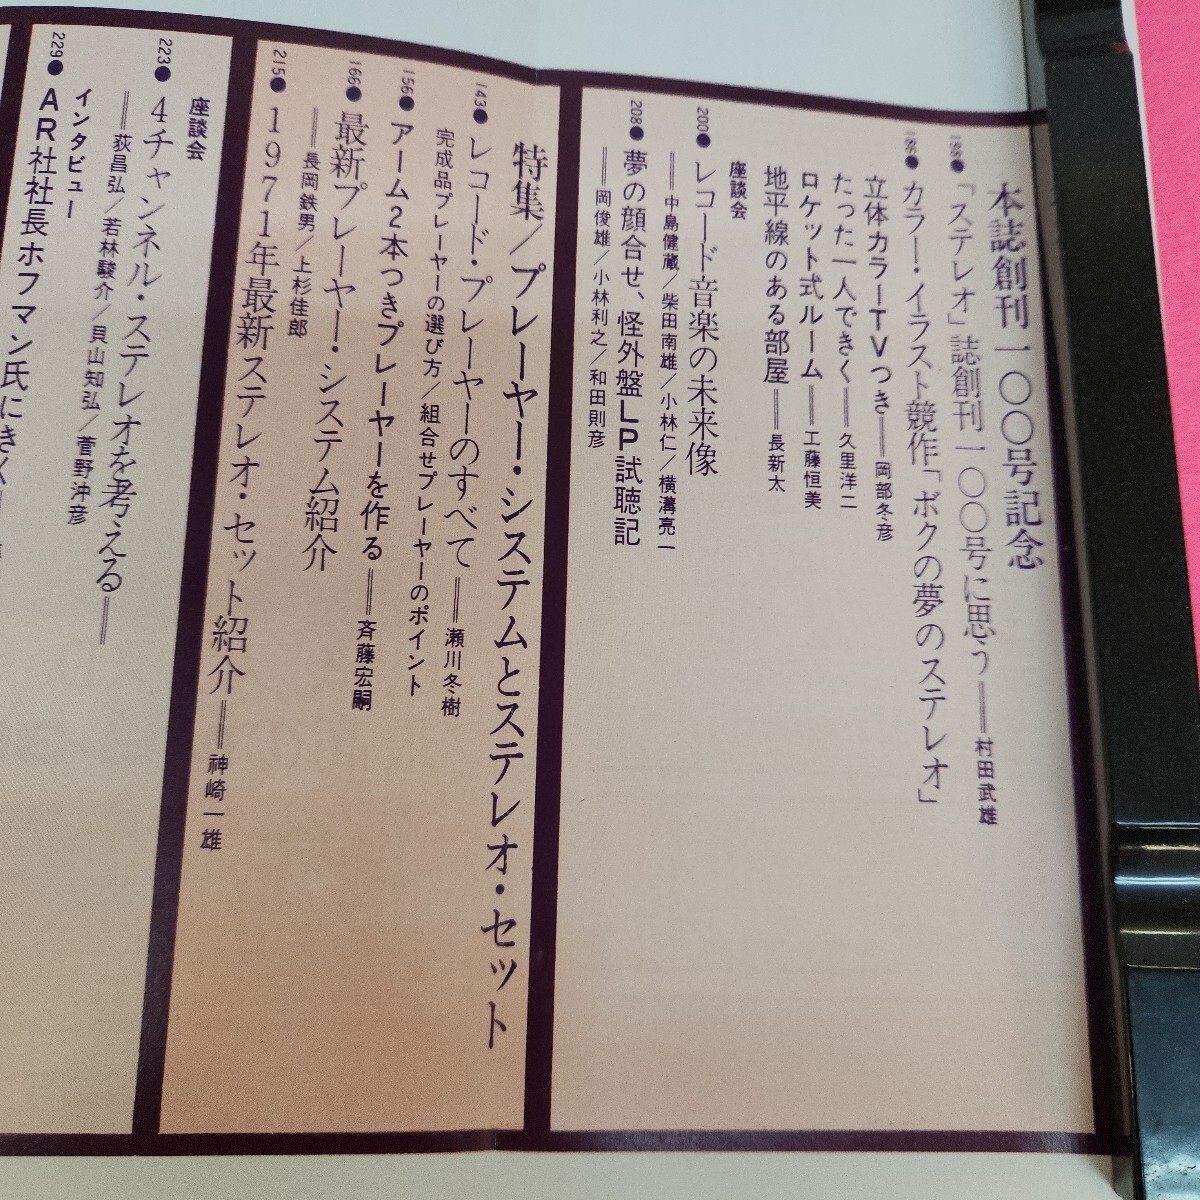 本誌創刊一〇〇号記念
「ステレオ」誌創刊一〇〇号に思う━━村田武雄
カラー・イラスト競作「ボクの夢のステレオ」
立体カラーTVつき━━岡部冬彦
たった一人できく━━久里洋二
ロケット式ルーム━━工藤恒美
地平線のある部屋━━長新太
座談会
200●レコード音楽の未来像
━━中島健蔵/柴田南雄/小林仁/横溝亮一
208●夢の顔合せ、怪外盤LP試聴記
━━岡俊雄/小林利之/和田則彦
特集/プレーヤー・システムとステレオ・セット
143●レコード・プレーヤーのすべて━━瀬川冬樹
完成品プレーヤーの選び方/組合せプレーヤーのポイント
156●アーム2本つきプレーヤーを作る━━斉藤宏嗣
166●最新プレーヤー・システム紹介
━━長岡鉄男/上杉佳郎
215●1971年最新ステレオ・セット紹介━━神崎一雄
座談会
223●4チャンネル・ステレオを考える━━
━━荻昌弘/若林駿介/貝山知弘/菅野沖彦
インタビュー
229●AR社社長ホフマン氏にきく